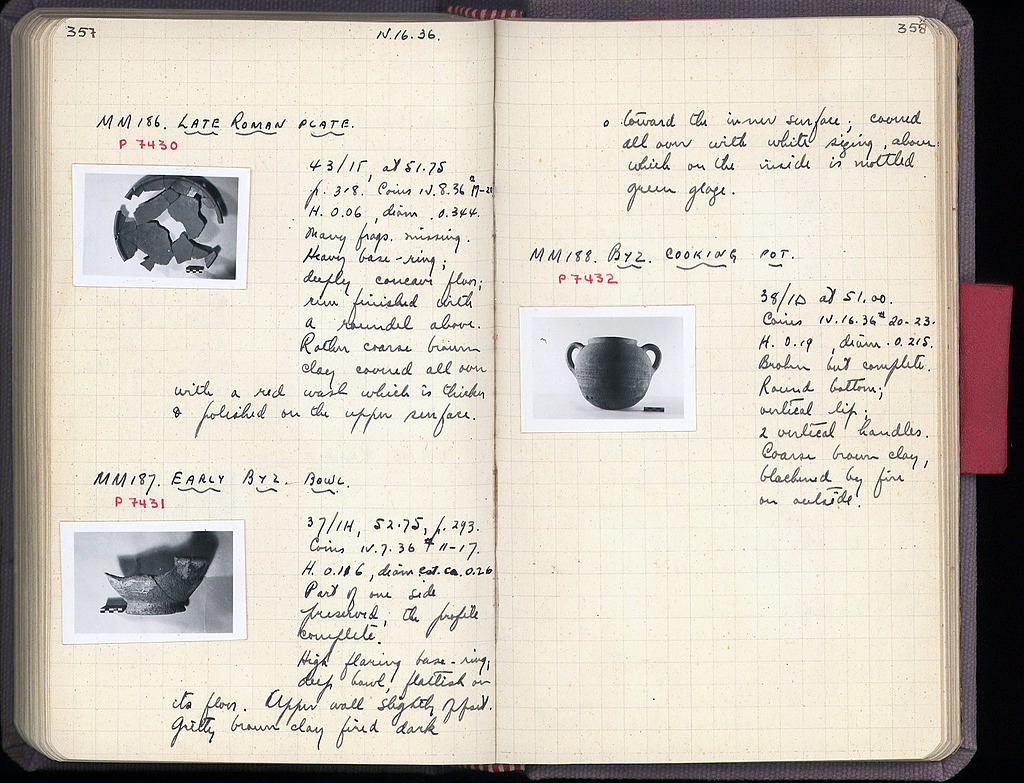 357
IV.16.36.
MM186. LATE ROMAN PLATE.
P 7430
43/IE, at 51.75
p. 318. Coins IV.8.36 #
H. 0.06, diam. 0.344.
Many frags. missing.
Heavy base-ring;
deeply concave floor;
rim finished with
a roundel above.
Rather coarse brown
clay covered all over
with a red wash which is thicker
& polished on the upper surface.
MM187. EARLY BYZ. BOWL.
P 7431
37/IH, 52.75, p. 293.
Coins IV.7.36 # 11-17.
H. 0.116, diam est. ca. 0.26
Part of one side
preserved; the profile
complete.
High flaring base-ring;
deep bowl, flattish on
its floor. Upper wall slightly offset.
Gritty brown clay fired dark
358
toward the inner surface; covered
all over with white sizing, above
which on the inside is mottled
green glaze.
MM188. BYZ. COOKING POT.
P 7432
38/ at 51.00.
Coins IV.16.36 # 20-23.
H. 0.19, diam. 0.215.
Broken but complete.
Round bottom;
vertical lip;
2 vertical handles.
Coarse brown clay,
blackened by fire
on outside.